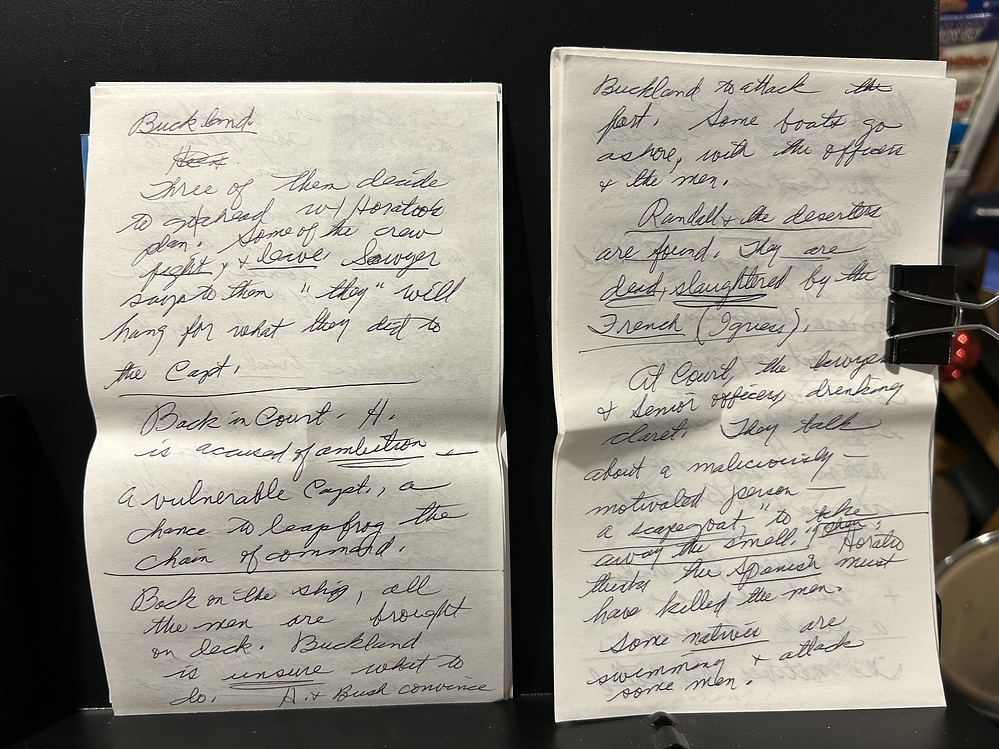 Buckland
Three of them decide
to go ahead w/ Horatio's
plan. Some of the crew
fight, + Sawyer
says to them "they" will
hang for what they did to
the Capt.
Back in Court - H.
is accused of ambition -
a vulnerable Capt., a
chance to leapfrog the
chain of command.
Back on the ship, all
the men are brought
on deck. Buckland
is unsure what to
do. H. + Bush convince
Buckland to attack the
fort. Some boats go
ashore, with the officers
+ the men.
Randall + the deserters
are found. They are
dead, slaughtered by the
French (I guess).
At Court, the lawyer
+ Senior officers, drinking
claret. They talk
about a maliciously -
motivated person -
a scapegoat, "to take
away the smell." Horatio
thinks the Spanish must
have killed the men.
Some natives are
swimming + attack
some men.